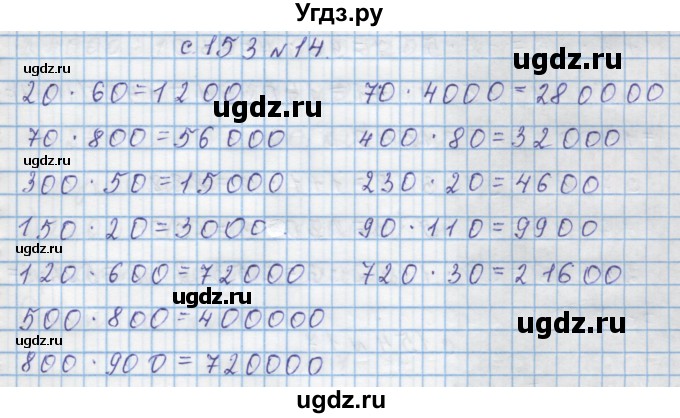 Угдз.ру
с. 153 №14.
20 · 60 = 1200
70 · 800 = 56000
300 · 50 = 15000
150 · 20 = 3000.
120 · 600 = 72000
500 · 800 = 400000
800 · 900 = 720000
70 · 4000 = 280000
400 · 80 = 32000
230 · 20 = 4600
90 · 110 = 9900
720 · 30 = 21600
ugdz.ru
ugdz.ru
ugdz.ru
ugdz.ru
ugdz.ru
ugdz.ru
ugdz.ru
ugdz.ru
ugdz.ru
ugdz.ru